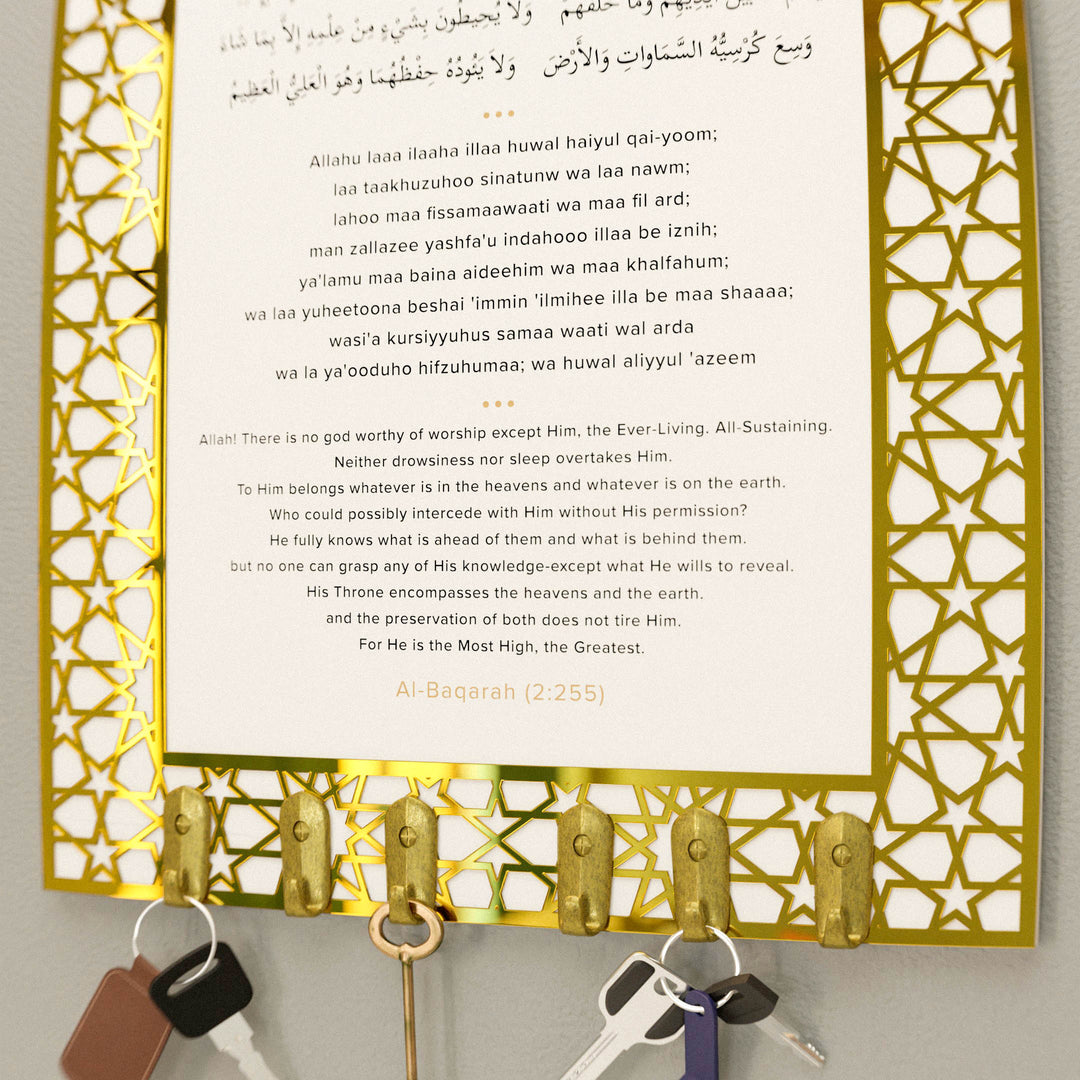 وَلاَ يُحِيطُونَ بِشَيْءٍ مِنْ عِلْمِهِ إِلاَّ بِمَا شَاءَ
وَسِعَ كُرْسِيُّهُ السَّمَاوَاتِ وَالأَرْضَ وَلاَ يَئُودُهُ حِفْظُهُمَا وَهُوَ الْعَلِيُّ الْعَظِيمُ
Allahu laaa ilaaha illaa huwal haiyul qai-yoom;
laa taakhuzuhoo sinatunw wa laa nawm;
lahoo maa fissamaawaati wa maa fil ard;
man zallazee yashfa'u indahooo illaa be iznih;
ya'lamu maa baina aideehim wa maa khalfahum;
wa laa yuheetoona beshai 'immin 'ilmihee illa be maa shaaaa;
wasi'a kursiyyuhus samaa waati wal arda
wa la ya'ooduho hifzuhumaa; wa huwal aliyyul 'azeem
Allah! There is no god worthy of worship except Him, the Ever-Living. All-Sustaining.
Neither drowsiness nor sleep overtakes Him.
To Him belongs whatever is in the heavens and whatever is on the earth.
Who could possibly intercede with Him without His permission?
He fully knows what is ahead of them and what is behind them.
but no one can grasp any of His knowledge-except what He wills to reveal.
His Throne encompasses the heavens and the earth.
and the preservation of both does not tire Him.
For He is the Most High, the Greatest.
Al-Baqarah (2:255)